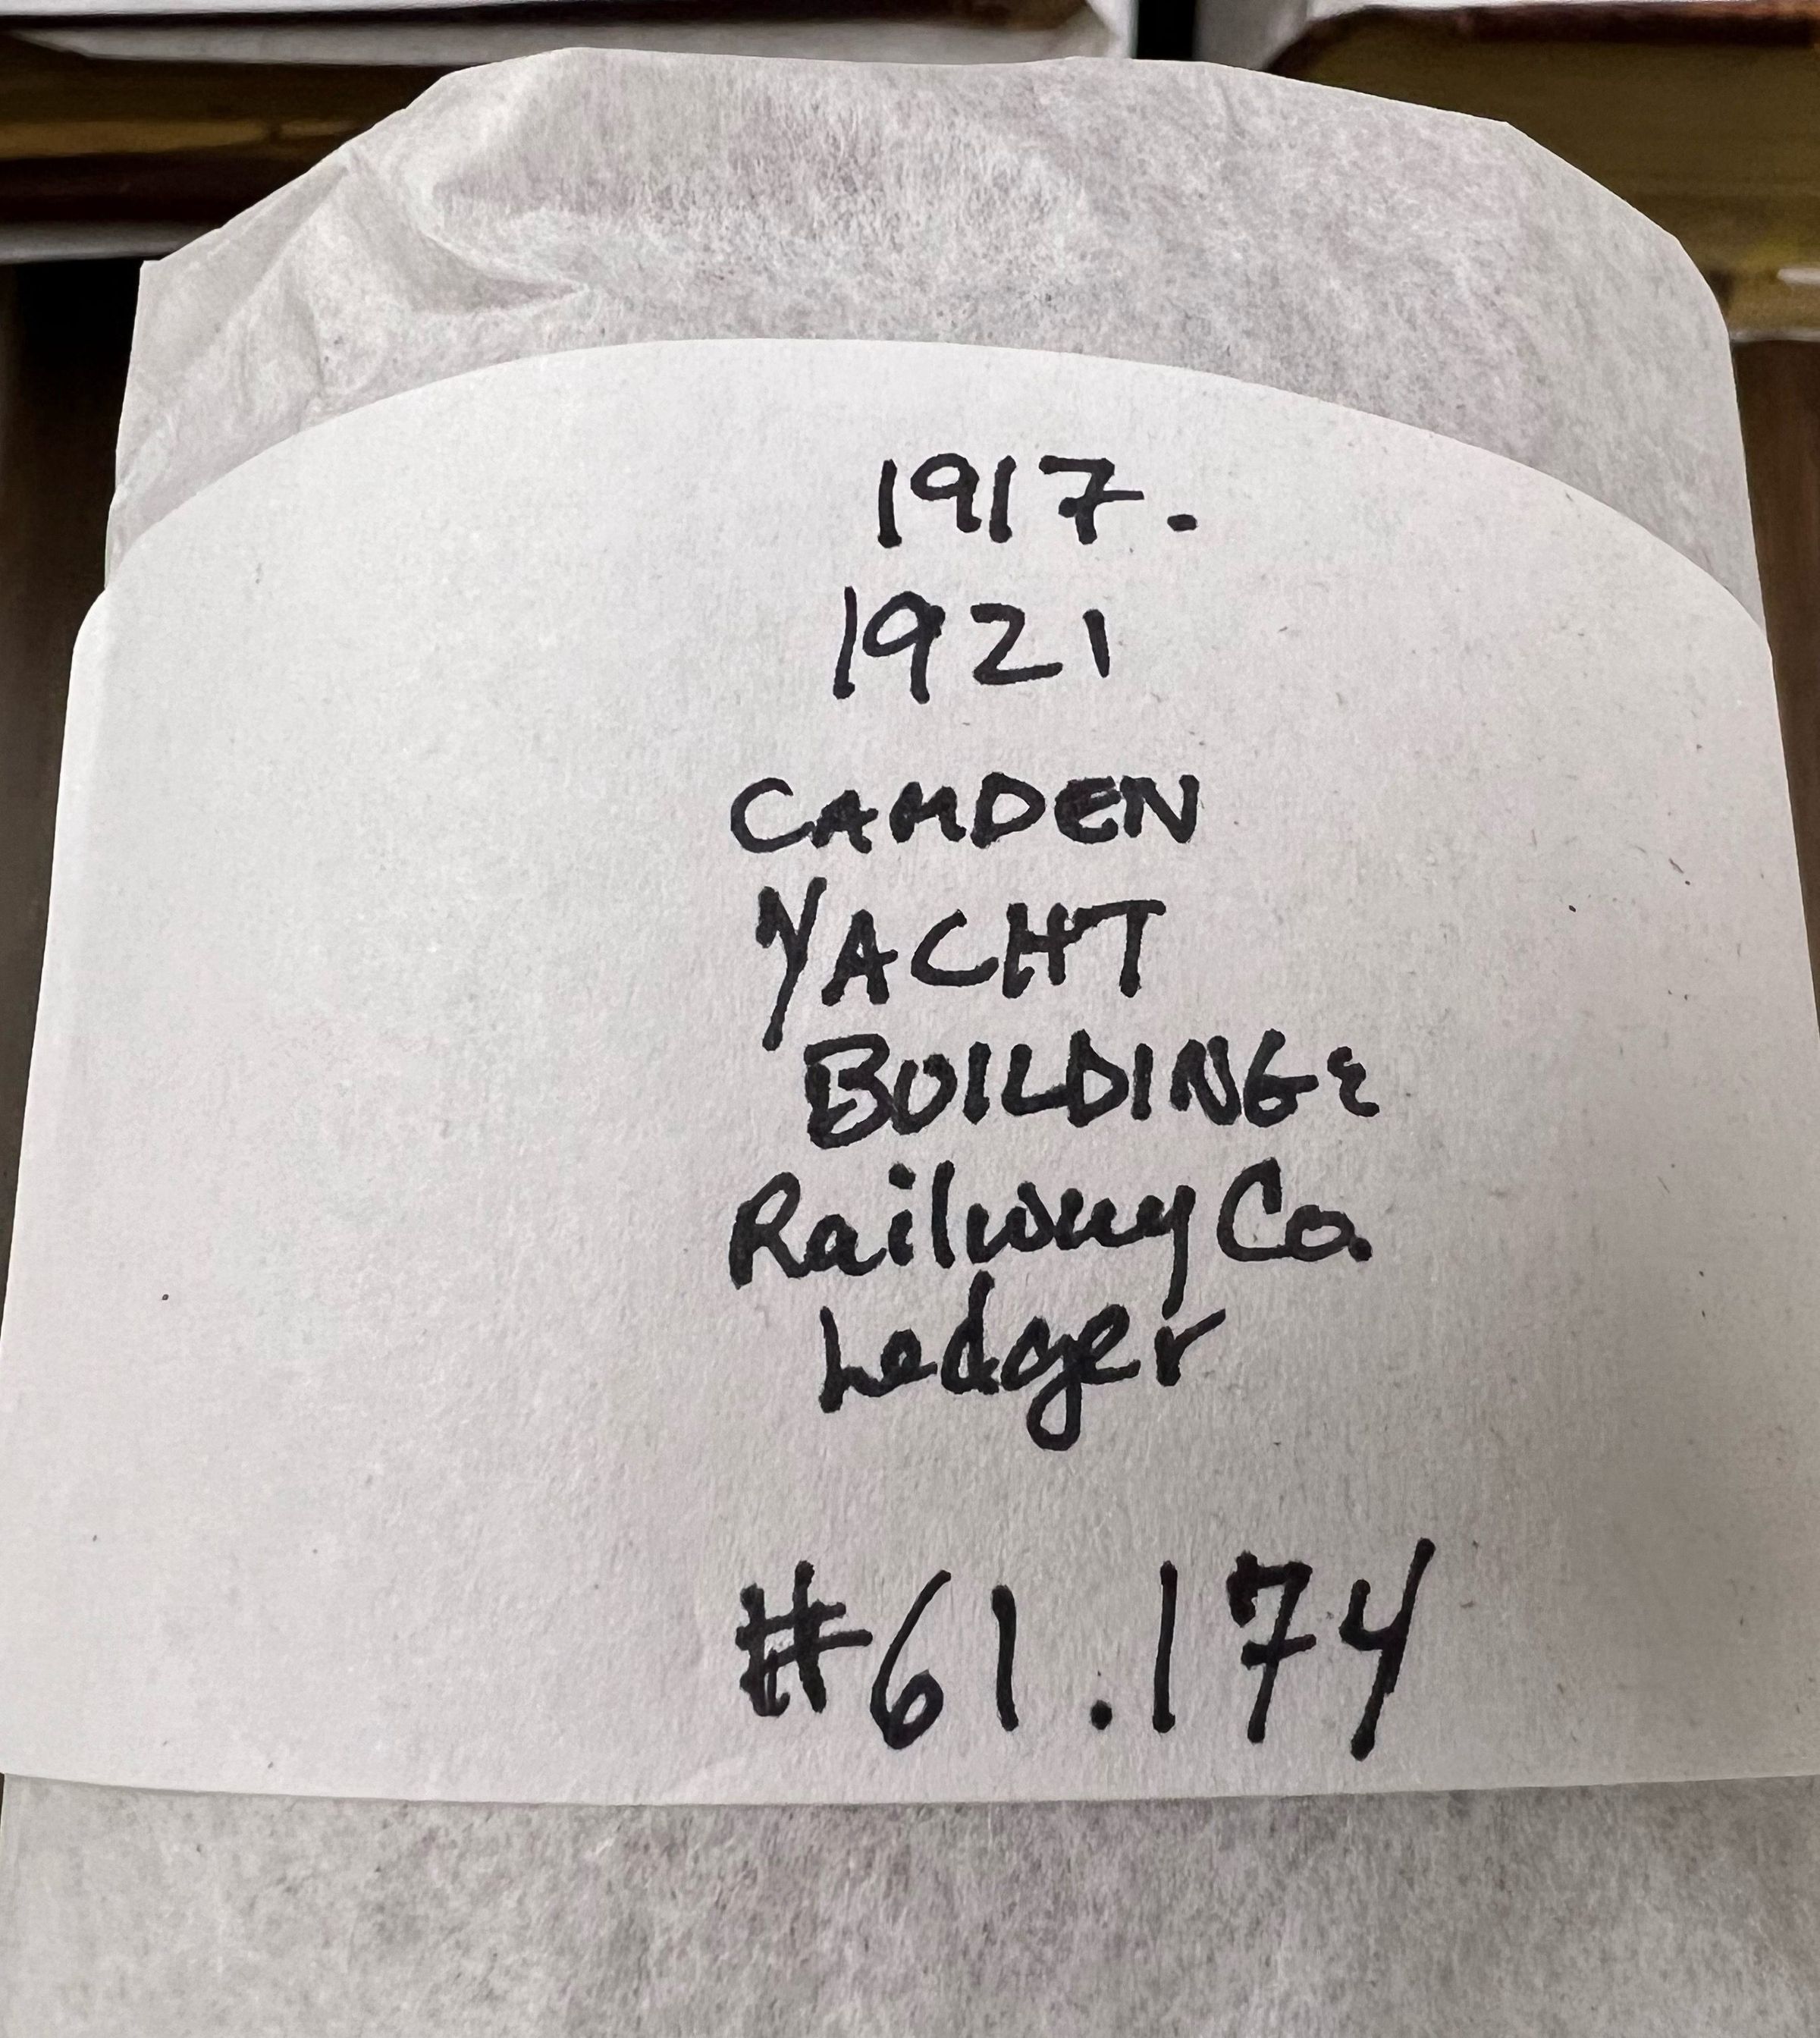 1917-
1921
CAMDEN
YACHT
BUILDING &
Railway Co.
Ledger
#61.174